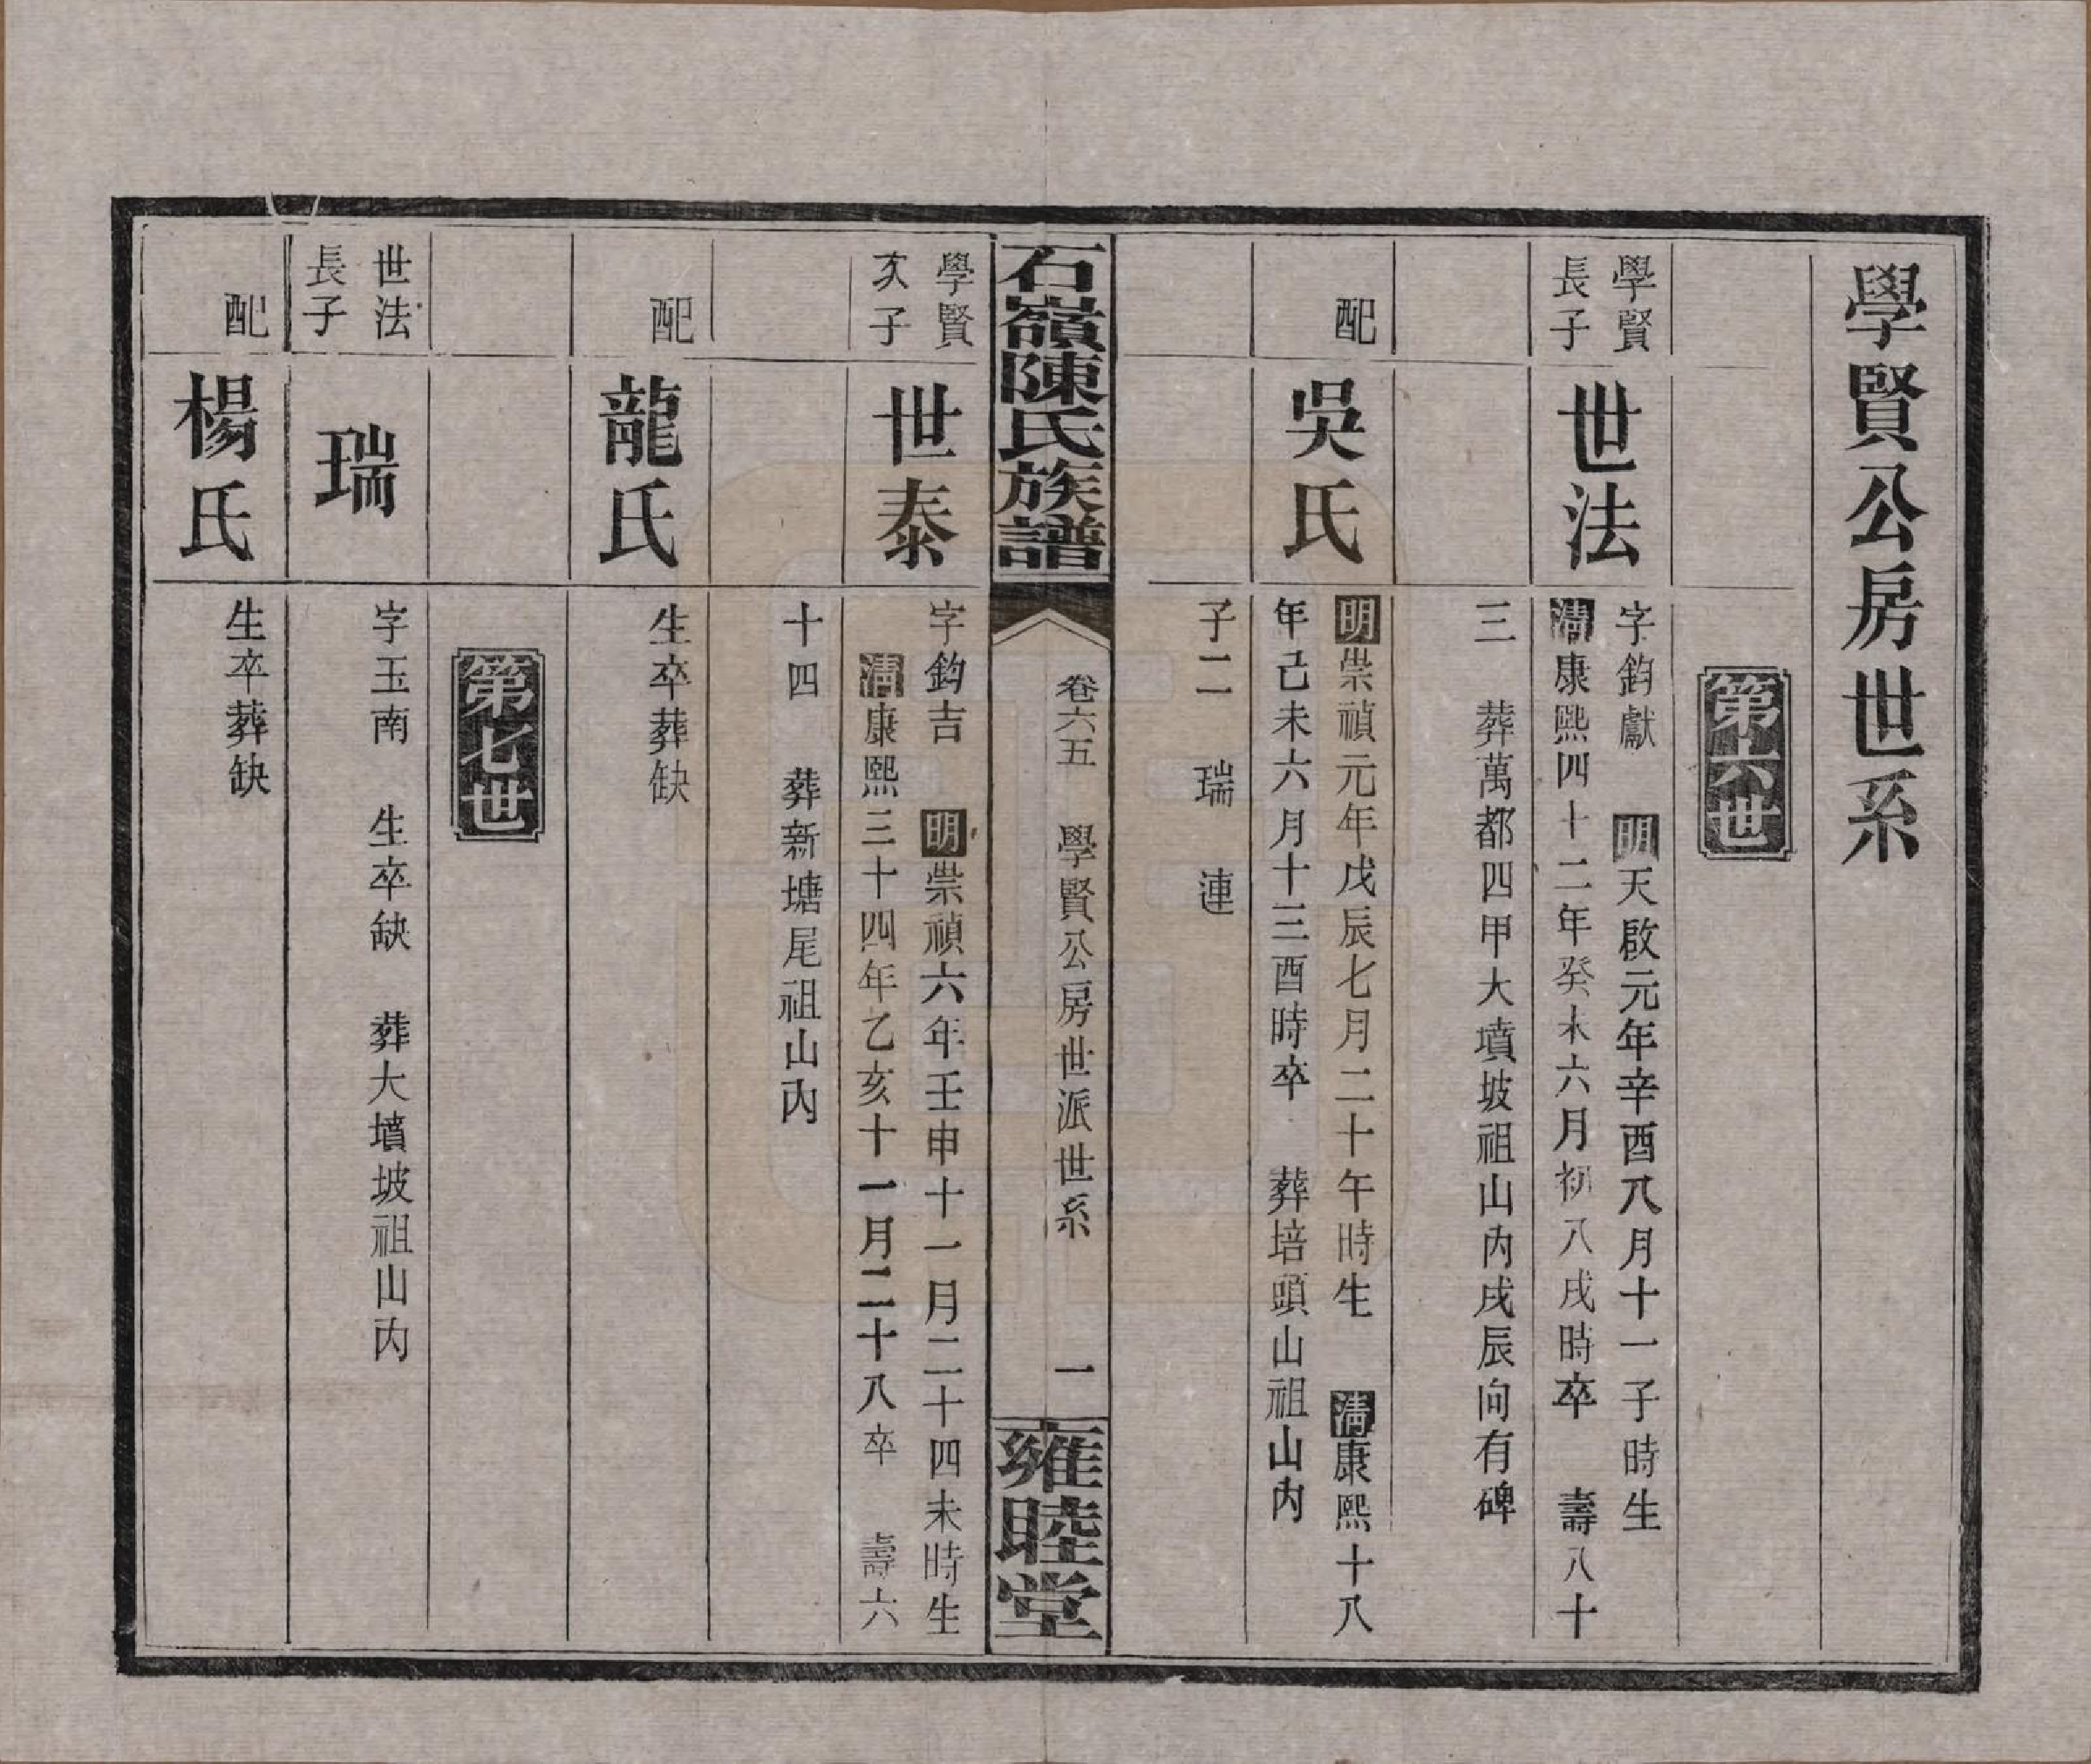 學賢公房世系
第六世
學賢
長子
世法
字鈞獻　明天啟元年辛酉八月十一子時生
清康熙四十二年癸未六月初八戌時卒　壽八十
三　葬萬都四甲大墳坡祖山內戌辰向有碑
配
吳氏
明崇禎元年戊辰七月二十午時生　清康熙十八
年己未六月十三酉時卒　葬培頭山祖山內
子二　瑞　連
石嶺陳氏族譜
卷六五　學賢公房世派世系
一
雍睦堂
學賢
次子
世泰
字鈞吉　明崇禎六年壬申十一月二十四未時生
清康熙三十四年乙亥十一月二十八卒　壽六
十四　葬新塘尾祖山內
配
龍氏
生卒葬缺
第七世
世法
長子
瑞
字玉南　生卒缺　葬大墳坡祖山內
配
楊氏
生卒葬缺